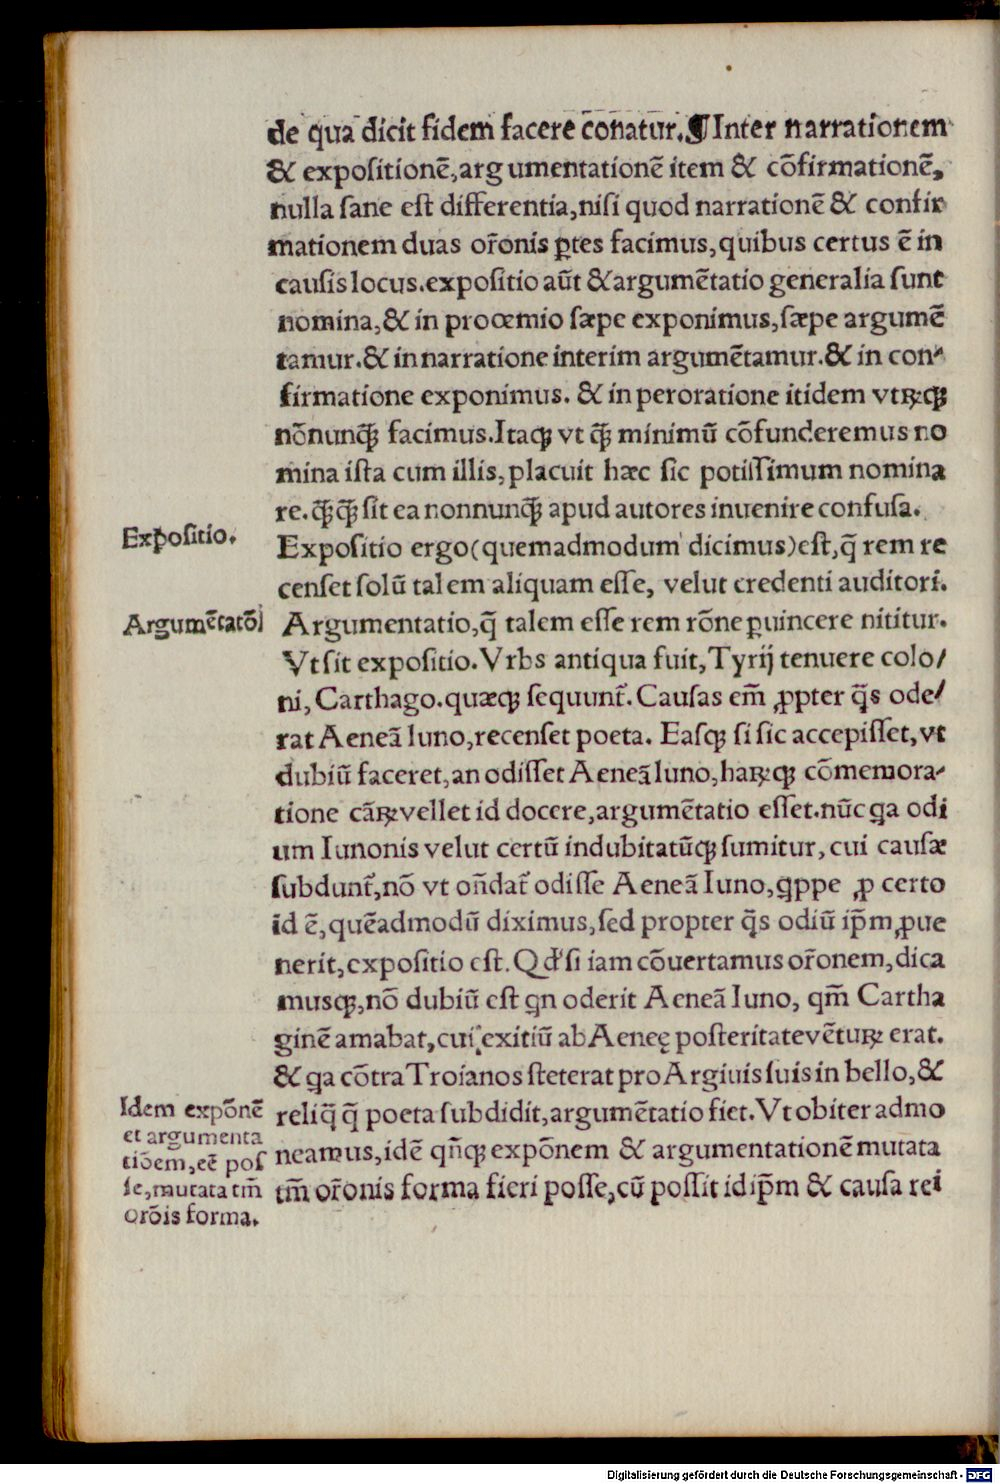 de qua dicit fidem facere conatur.¶Inter narrationem
& expositionē,argumentationē item & cōfirmationē,
nulla sane est differentia,nisi quod narrationē & confir
mationem duas or̄onis ꝑtes facimus,quibus certus ē in
causis locus.expositio aūt &argumētatio generalia sunt
nomina,& in proœmio sæpe exponimus,sæpe argumē
tamur.& in narratione interim argumētamur.& in con-
firmatione exponimus. & in peroratione itidem vtꝝqꝫ
nōnunq̄ꝫ facimus.Itaqꝫ vt q̄ꝫ minimū cōfunderemus no
mina ista cum illis,placuit hæc sic potissimum nomina
re.q̄ꝫq̄ꝫ sit ea nonnunq̄ꝫ apud autores inuenire confusa.
Expositio.
Expositio ergo(quemadmodum dicimus)est,q̄ rem re
censet solū talem aliquam esse, velut credenti auditori.
Argumētatōl
Argumentatio,q̄ talem esse rem rōne ꝑuincere nititur.
Vt sit expositio.Vrbs antiqua fuit,Tyrij tenuere colo/
ni,Carthago.quæqꝫ sequunt̄.Causas em̄ ꝓpter q̄s ode/
rat Aeneā Iuno,recenset poeta. Easqꝫ si sic accepisset,vt
dubiū faceret,an odisset Aeneā Iuno,haꝝqꝫ cōmemora-
tione cāꝝ vellet id docere,argumētatio esset.nūc ꝗa odi
um Iunonis velut certū indubitatūqꝫ sumitur,cui causæ
subdunt̄,nō vt on̄dat̄ odisse Aeneā Iuno,ꝗppe ꝓ certo
id ē,quēadmodū diximus,sed propter q̄s odiū ip̄m ꝓue
nerit,expositio est.Qd' si iam cōuertamus or̄onem,dica
musqꝫ,nō dubiū est ꝗn oderit Aeneā Iuno, qm̄ Cartha
ginē amabat,cui exitiū ab Aeneę posteritate vētuꝝ erat.
& ꝗa cōtra Troianos steterat pro Argiuis suis in bello,&
Idem expōnē
et argumenta
tiōem,eē pos
se,mutata tm̄
orōis forma.
reliq̄ q̄ poeta subdidit,argumētatio fiet.Vt obiter admo
neamus,idē qn̄qꝫ expōnem & argumentationē mutata
tm̄ or̄onis forma fieri posse,cū possit id ip̄m & causa rei
Digitalisierung gefördert durch die Deutsche Forschungsgemeinschaft - DFG